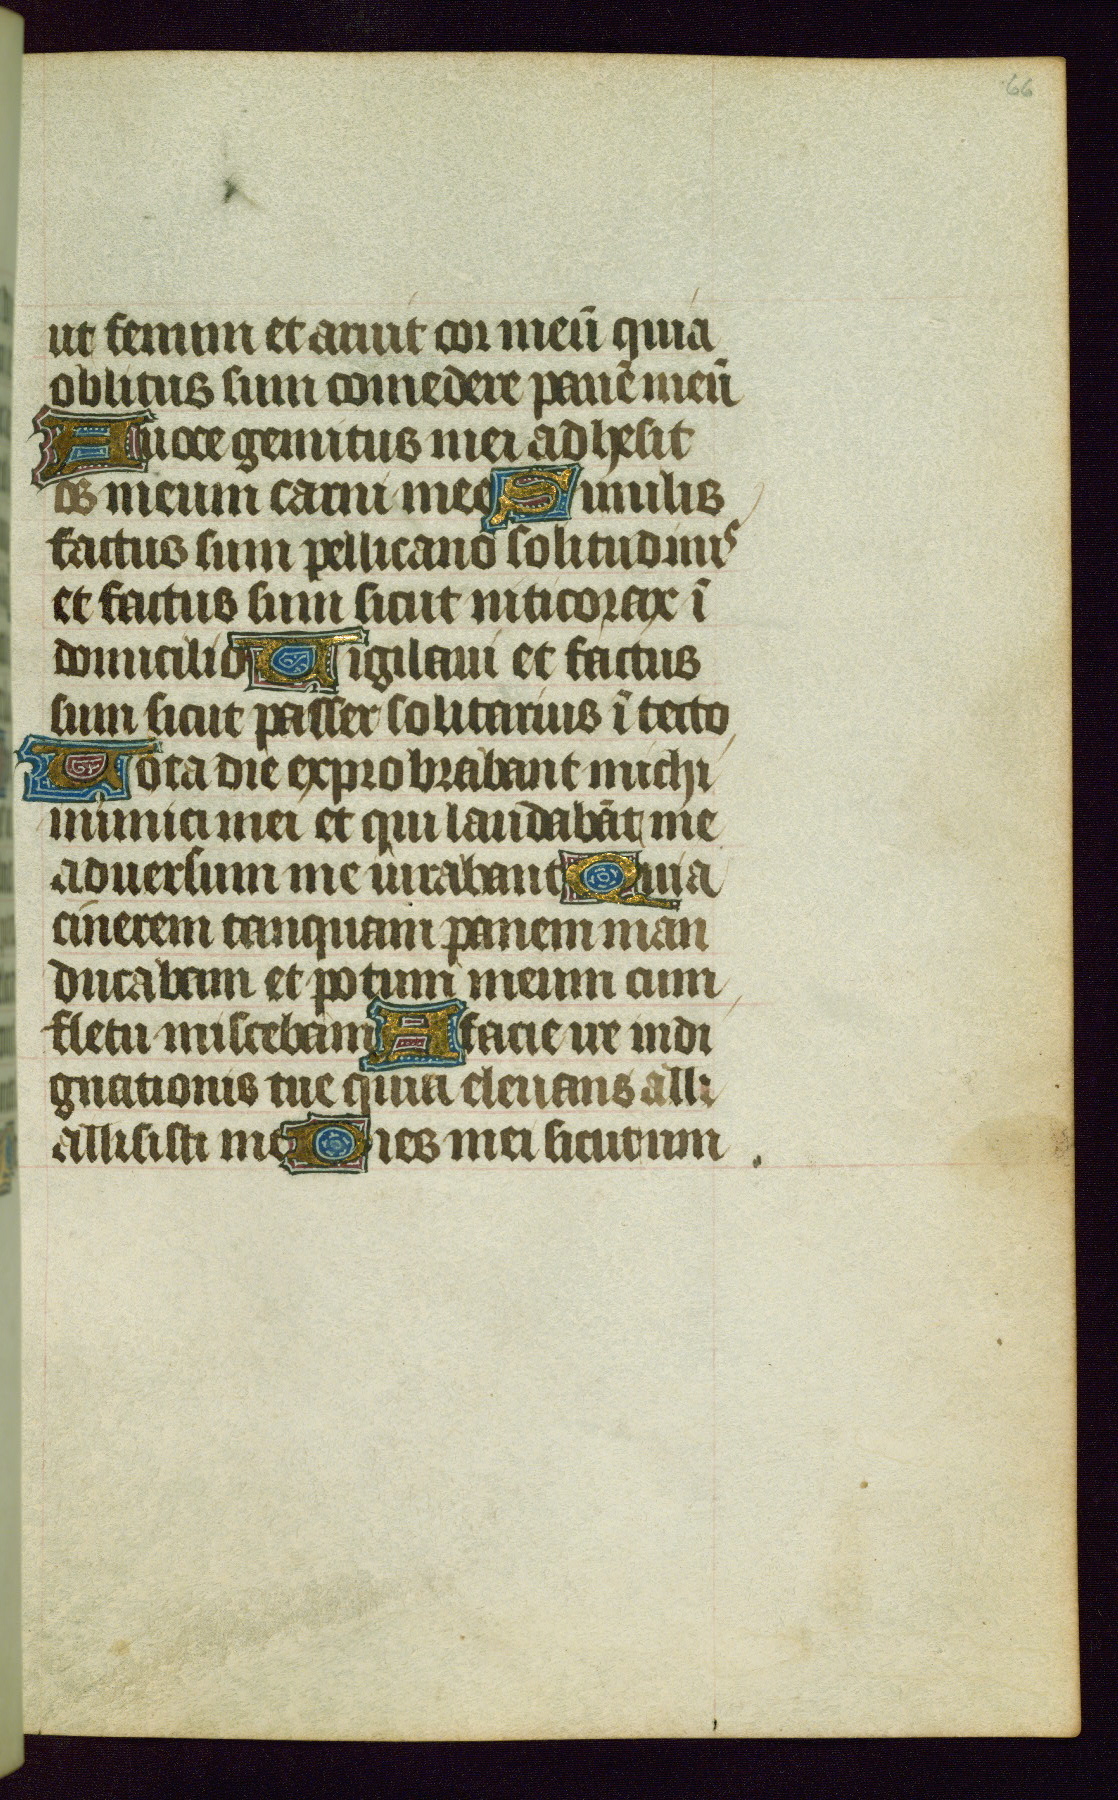 66
ut fenum et aruit cor meū quia
oblitus sum comedere panē meū
A uoce gemitus mei adhesit
os meum carni mee Similis
factus sum pellicano solitudinis
et factus sum sicut niticorax ī
domicilio Uigilaui et factus
sum sicut passer solitarius ī tecto
Tota die exprobrabant michi
inimici mei et qui laudabāt me
aduersum me iurabant Quia
cinerem tanquam panem man
ducabam et potum meum cum
fletu miscebam A facie ire indi
gnationis tue quia eleuans alli
allisisti me Dies mei sicut um